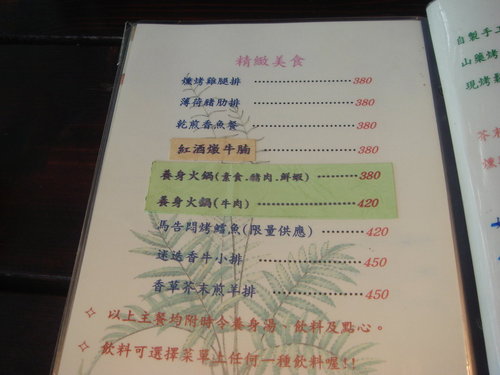 精緻美食
爐烤雞腿排 380
薄荷豬肋排 380
乾煎香魚餐 380
紅酒燉牛腩 380
養身火鍋(素食.豬肉.鮮蝦) 380
養身火鍋(牛肉) 420
馬告悶烤鱈魚(限量供應) 420
迷迭香牛小排 450
香草芥末煎羊排 450
✧ 以上主餐均附時令養身湯、飲料及點心。
✧ 飲料可選擇菜單上任何一種飲料喔!!
自製手工
山藥烤
現烤